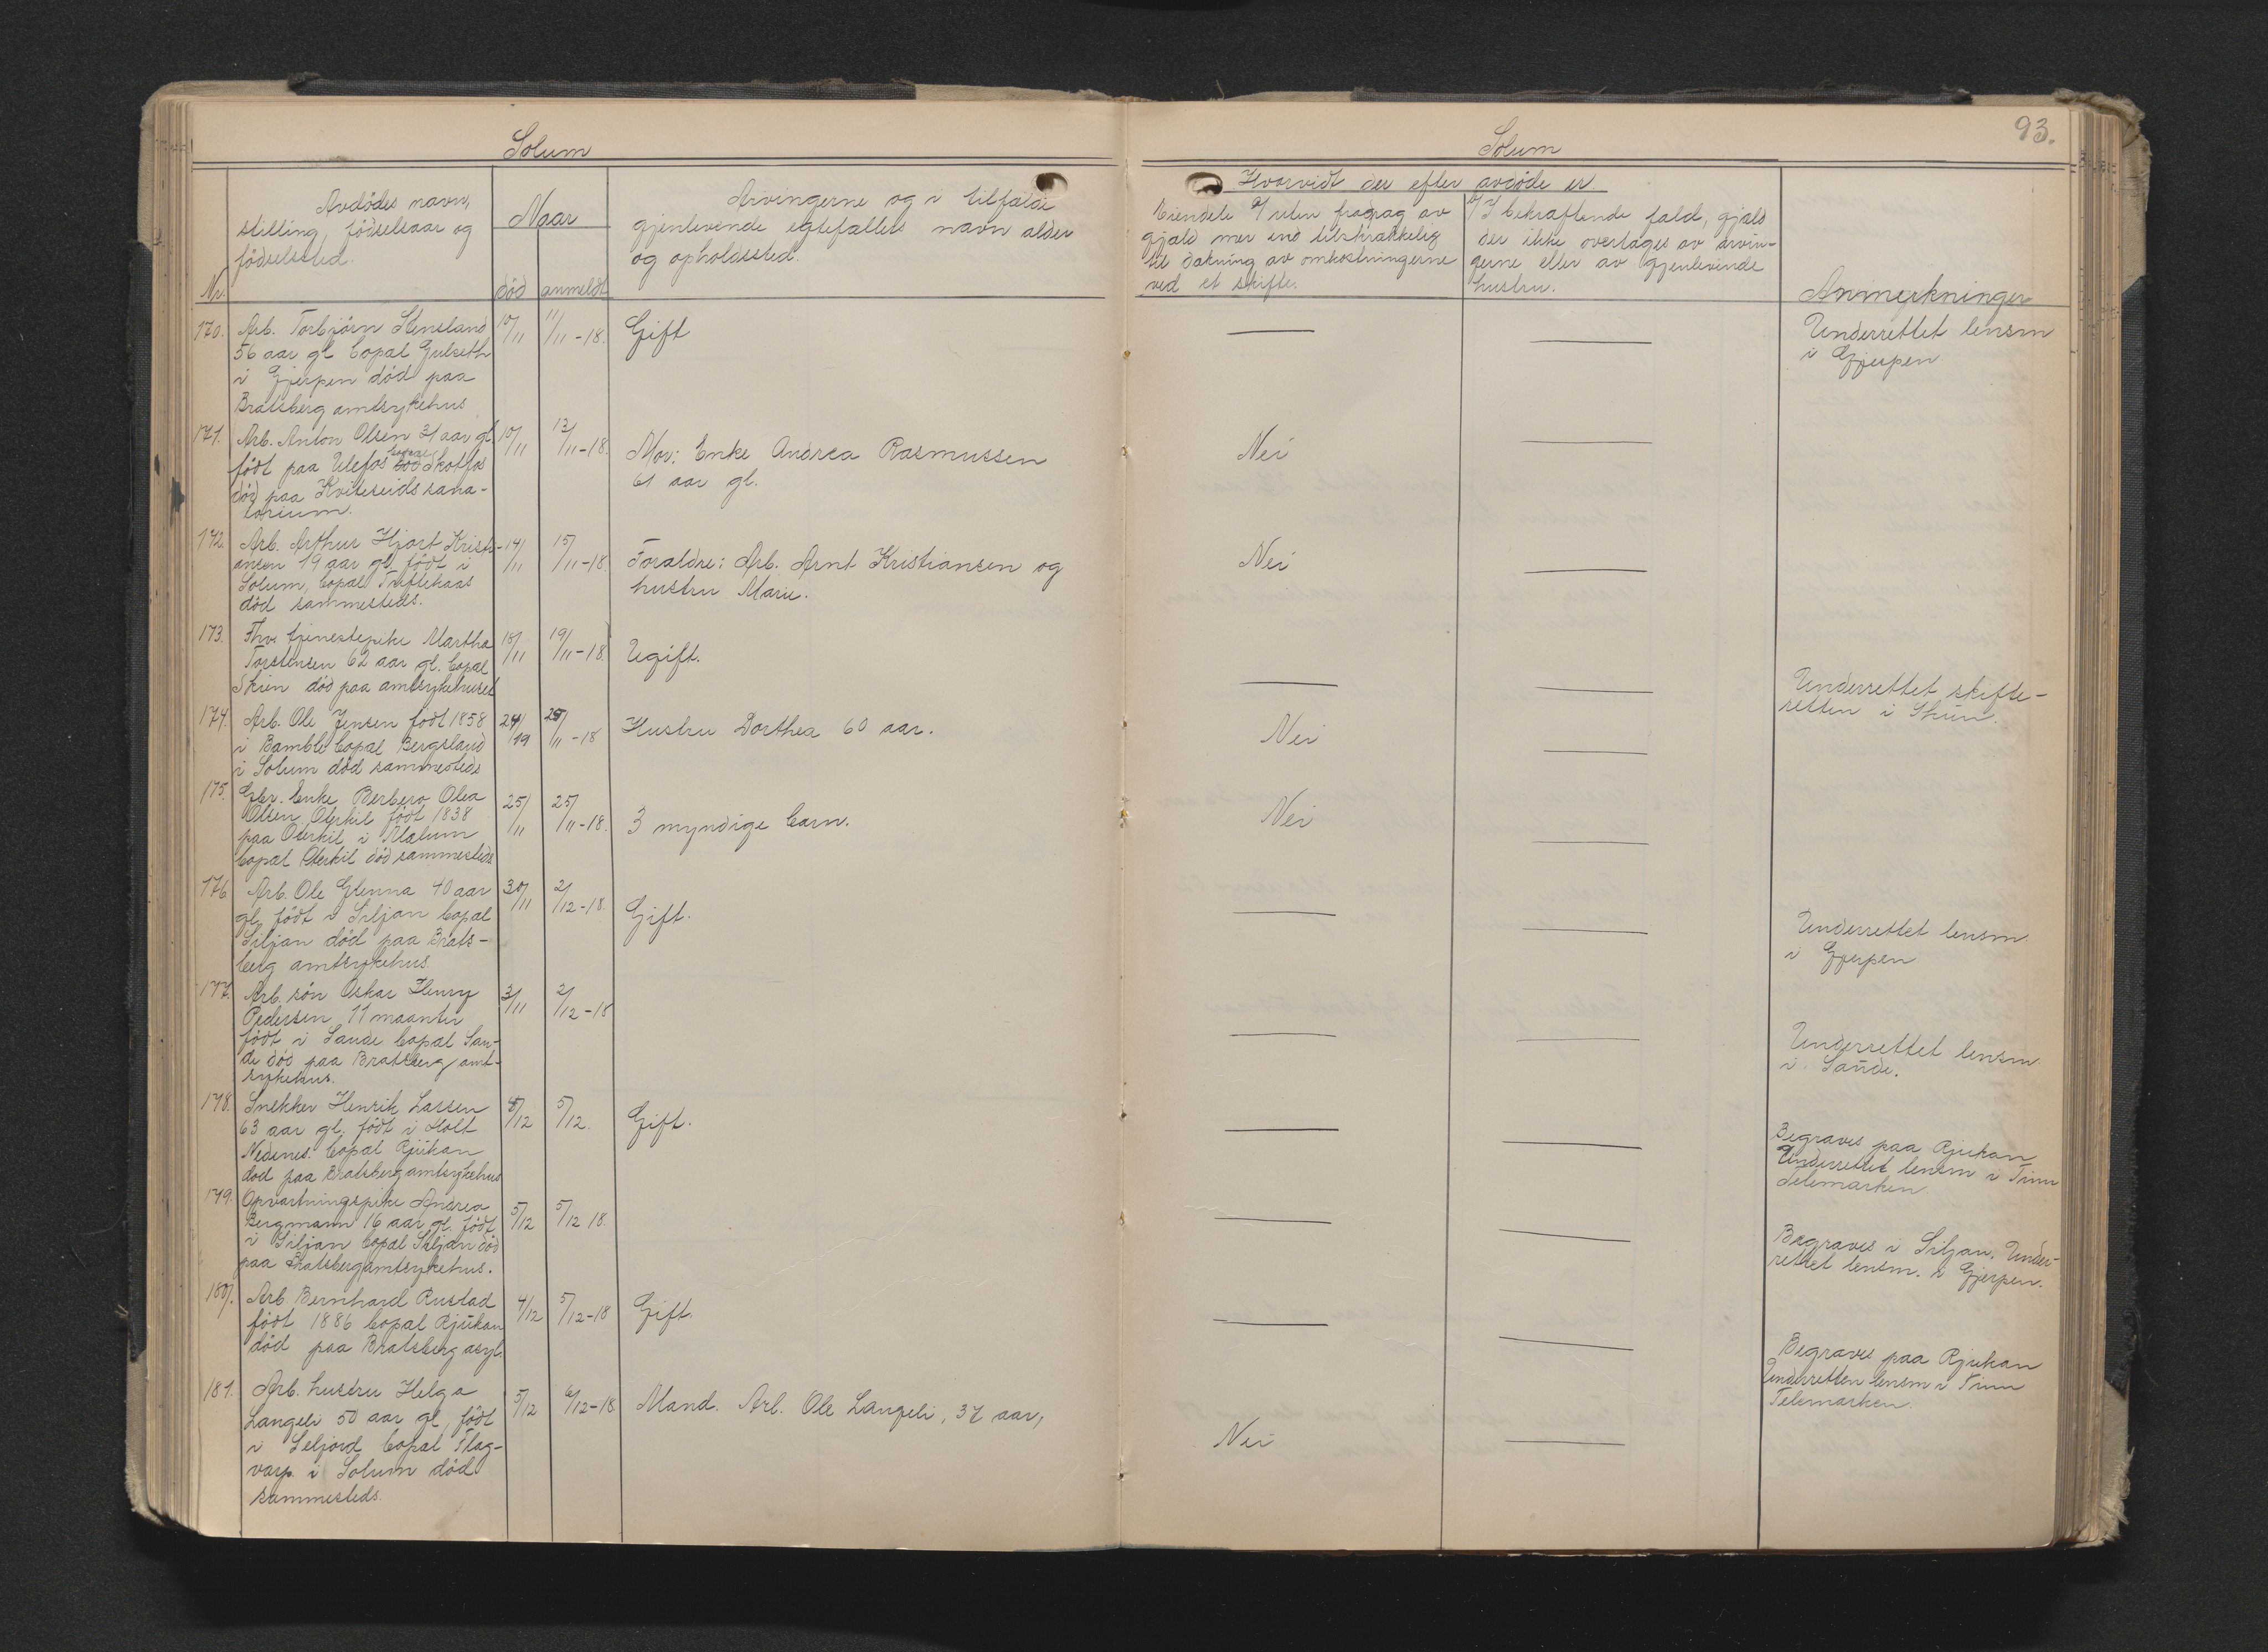 Solum
Avdödes navn,
stilling, födselsaar og
födselssted.
Nr.
Naar
död anmeldt
Arvingerne og i tilfælde
gjenlevende egtefælles navn alder
og opholdssted.
170. Arb. Torbjörn Stensland 10/11 11/11-18. Gift
56 aar gl bopæl Gulseth
i Gjerpen död paa
Bratsberg amtsykehus
171. Arb. Anton Olsen 31 aar gl. 10/11 13/11-18.
født paa Ulefos bopæl Skotfos
död paa Kviteseids sana-
torium.
Mor: Enke Andrea Rasmussen
61 aar gl.
172. Arb. Arthur Hjort Kristi- 14/11 15/11-18.
ansen 19 aar gl født i
Solum, bopæl Trollekaas
död sammesteds.
Forældre: Arb. Arnt Kristiansen og
hustru Marie.
173. Fhv. tjenestepike Martha 18/11 19/11-18. Ugift.
Torstensen 62 aar gl. bopæl
Skien död paa amtsykehuset
174. Arb. Ole Jensen født 1858 24/19 25/11-18 Hustru Dorthea 60 aar.
i Bamble bopæl Bergsland
i Solum död sammesteds
175. Gbr. enke Berbero Olea 25/11 25/11-18. 3 myndige barn.
Olsen Oterkil født 1838
paa Oterkil i Mælum
bopæl Oterkil död sammesteds
176 Arb. Ole Glenna 40 aar 30/11 2/12-18. Gift.
gl, født i Siljan bopæl
Siljan död paa Brats-
berg amtsykehus.
177. Arb. søn Oskar Henry 3/11 2/12-18
Pedersen 11 maanter
født i Sande bopæl San-
de död paa Bratsberg amt-
sykehus.
178. Snekker Henrik Larsen 4/12 5/12. Gift.
63 aar gl. født i Holt
Nedenes. bopæl Rjukan
död paa Bratsberg amtsykehus
179. Opvartningspike Andrea 5/12 5/12 18.
Bergmann 16 aar gl. født
i Siljan bopæl Siljan död
paa Bratsberg amtsykehus.
180. Arb. Bernhard Rustad 4/12 5/12-18 Gift.
født 1886 bopæl Rjukan
död paa Bratsberg asyl.
181. Arb. hustru Helga 5/12 6/12-18 Mand. Arb. Ole Langeli, 37 aar,
Langeli 50 aar gl, født
i Seljord bopæl Flag-
varp i Solum död
sammesteds.
Solum
93.
Hvorvidt der efter avdöde er
Eiendele a/ uten fradrag av
gjæld mer end tilstrækkelig
til dækning av omkostningerne
ved et skifte.
b/ I bekræftende fald, gjæld
der ikke overtages av arvin-
gerne eller av gjenlevende
hustru.
Anmerkninger
Underrettet lensm
i Gjerpen
Nei
Nei
Underrettet skifte-
retten i Skien.
Nei
Nei
Underrettet lensm.
i Gjerpen
Underrettet lensm.
i Sande.
Begraves paa Rjukan
Underrettet lensm i Tinn
Telemarken
Begraves i Siljan. Under-
rettet lensm. i Gjerpen.
Begraves paa Rjukan
Underretten lensm i Tinn
Telemarken.
Nei